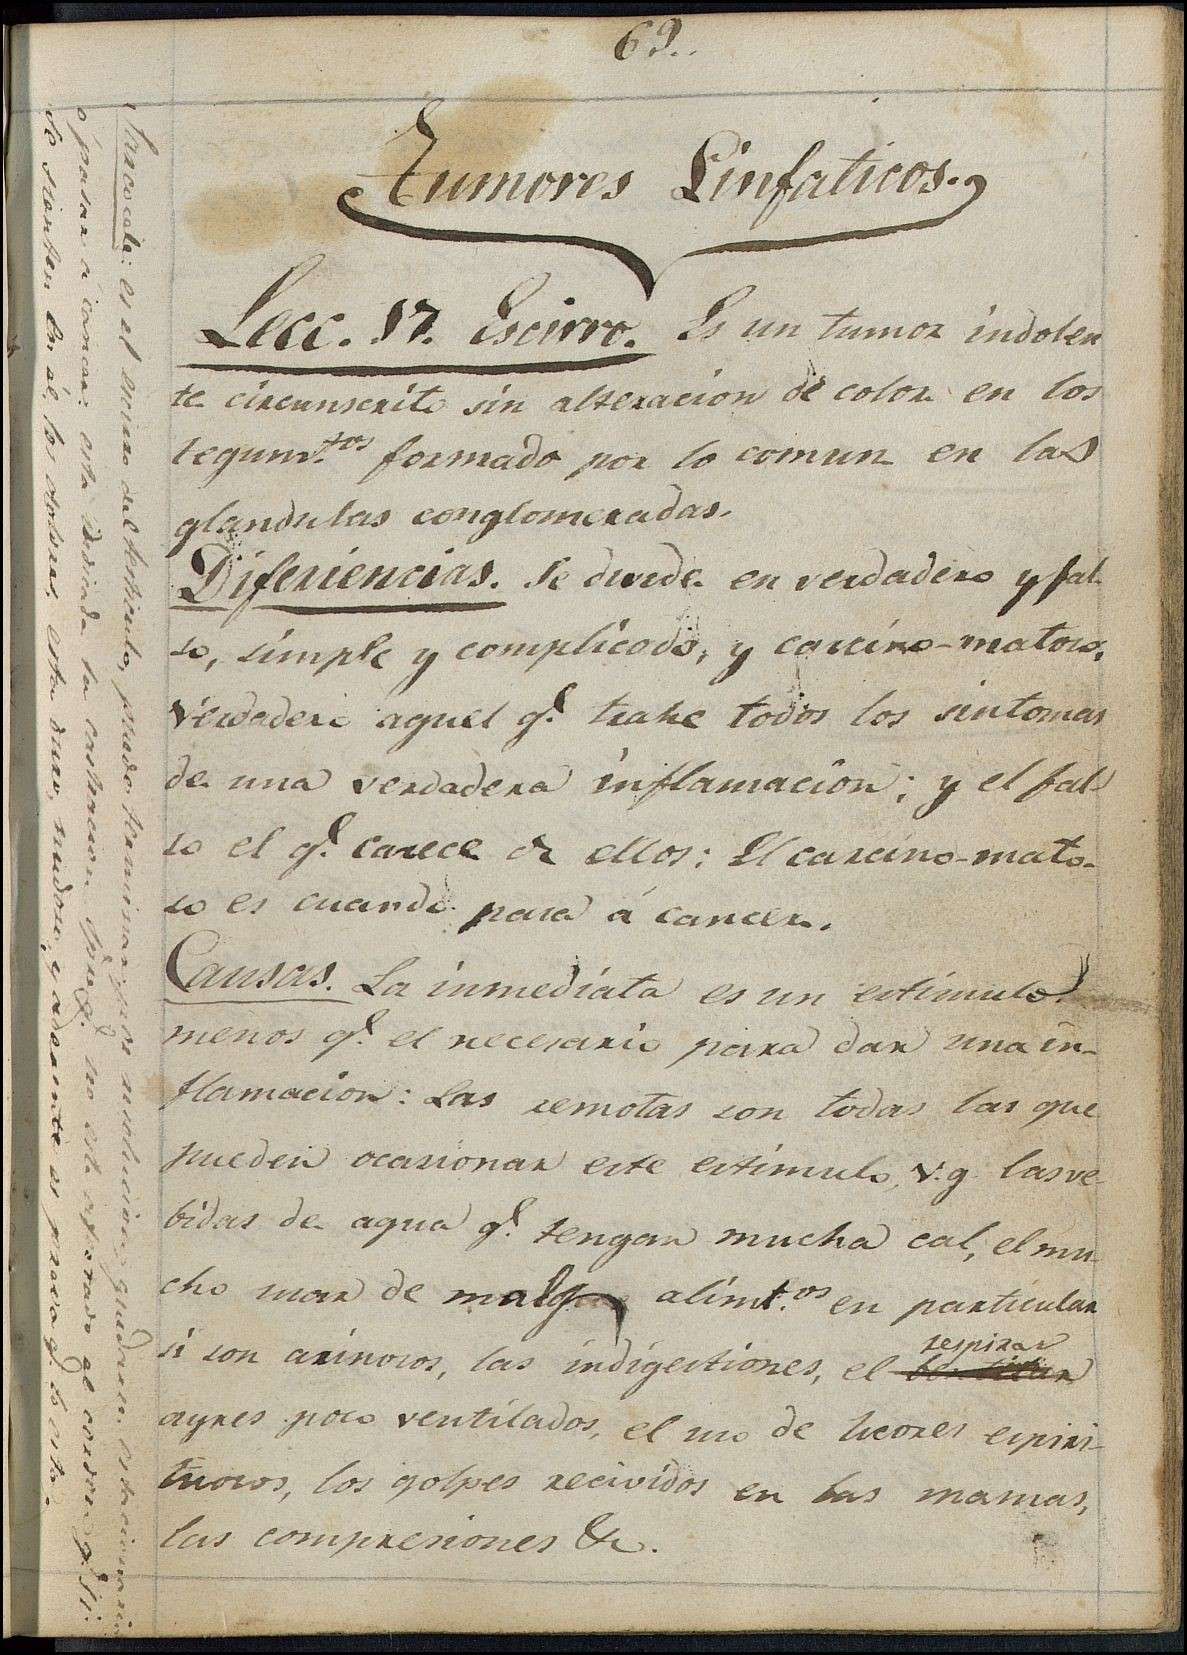 69.
Tumores Linfaticos.
Lecc. 17. Escirro. Es un tumor indolen
te circunscrito sin alteracion de color en los
tegum.tos formado por lo comun en las
glandulas conglomeradas.
Diferiencias. Se divide en verdadero y fal-
so, simple y complicado, y carcino-matoso.
Verdadero aquel q.e trahe todos los sintomas
de una verdadera inflamacion; y el fal-
so el q.e carece de ellos: El carcino-mato-
so es cuando pasa á cancer.
Causas. La inmediata es un estimulo
menos q.e el necesario para dar una in-
flamacion: Las remotas son todas las que
pueden ocasionar este estimulo, v.g. las ve
bidas de agua q.e tengan mucha cal, el mu
cho usar de malos alimt.os en particular
si son arinosos, las indigestiones, el respirar
ayres poco ventilados, el uso de licores espiri-
tuosos, los golpes recividos en las mamas,
las compresiones &c.
Sarcocele: es el scirro del testiculo, puede terminar por resolucion, quedarse estacionario
o pasar a cancer: esta indicada la castracion siempre q.e no este afectado el cordon q.e si
se sienten en él los dolores, esta duro, nudoso, y adherente se